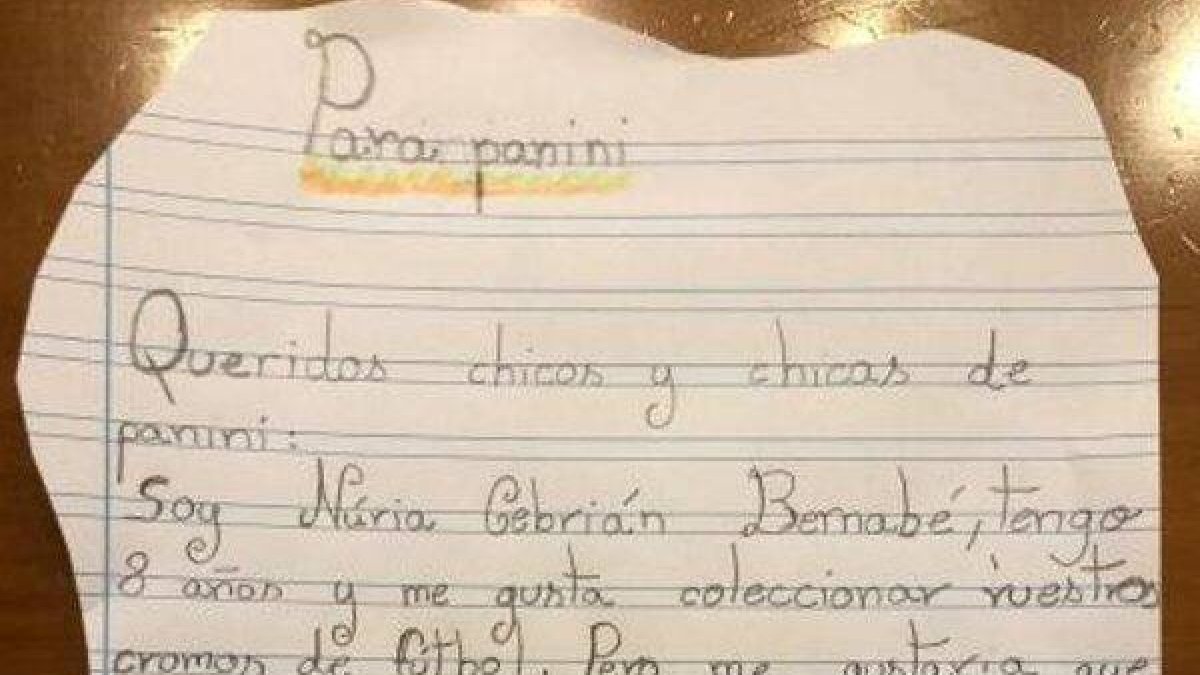 Para panini
Queridos chicos y chicas de
panini:
Soy Núria Cebrián Bernabé, tengo
8 años y me gusta coleccionar vuestros
cromos de fútbol. Pero me gustaría que